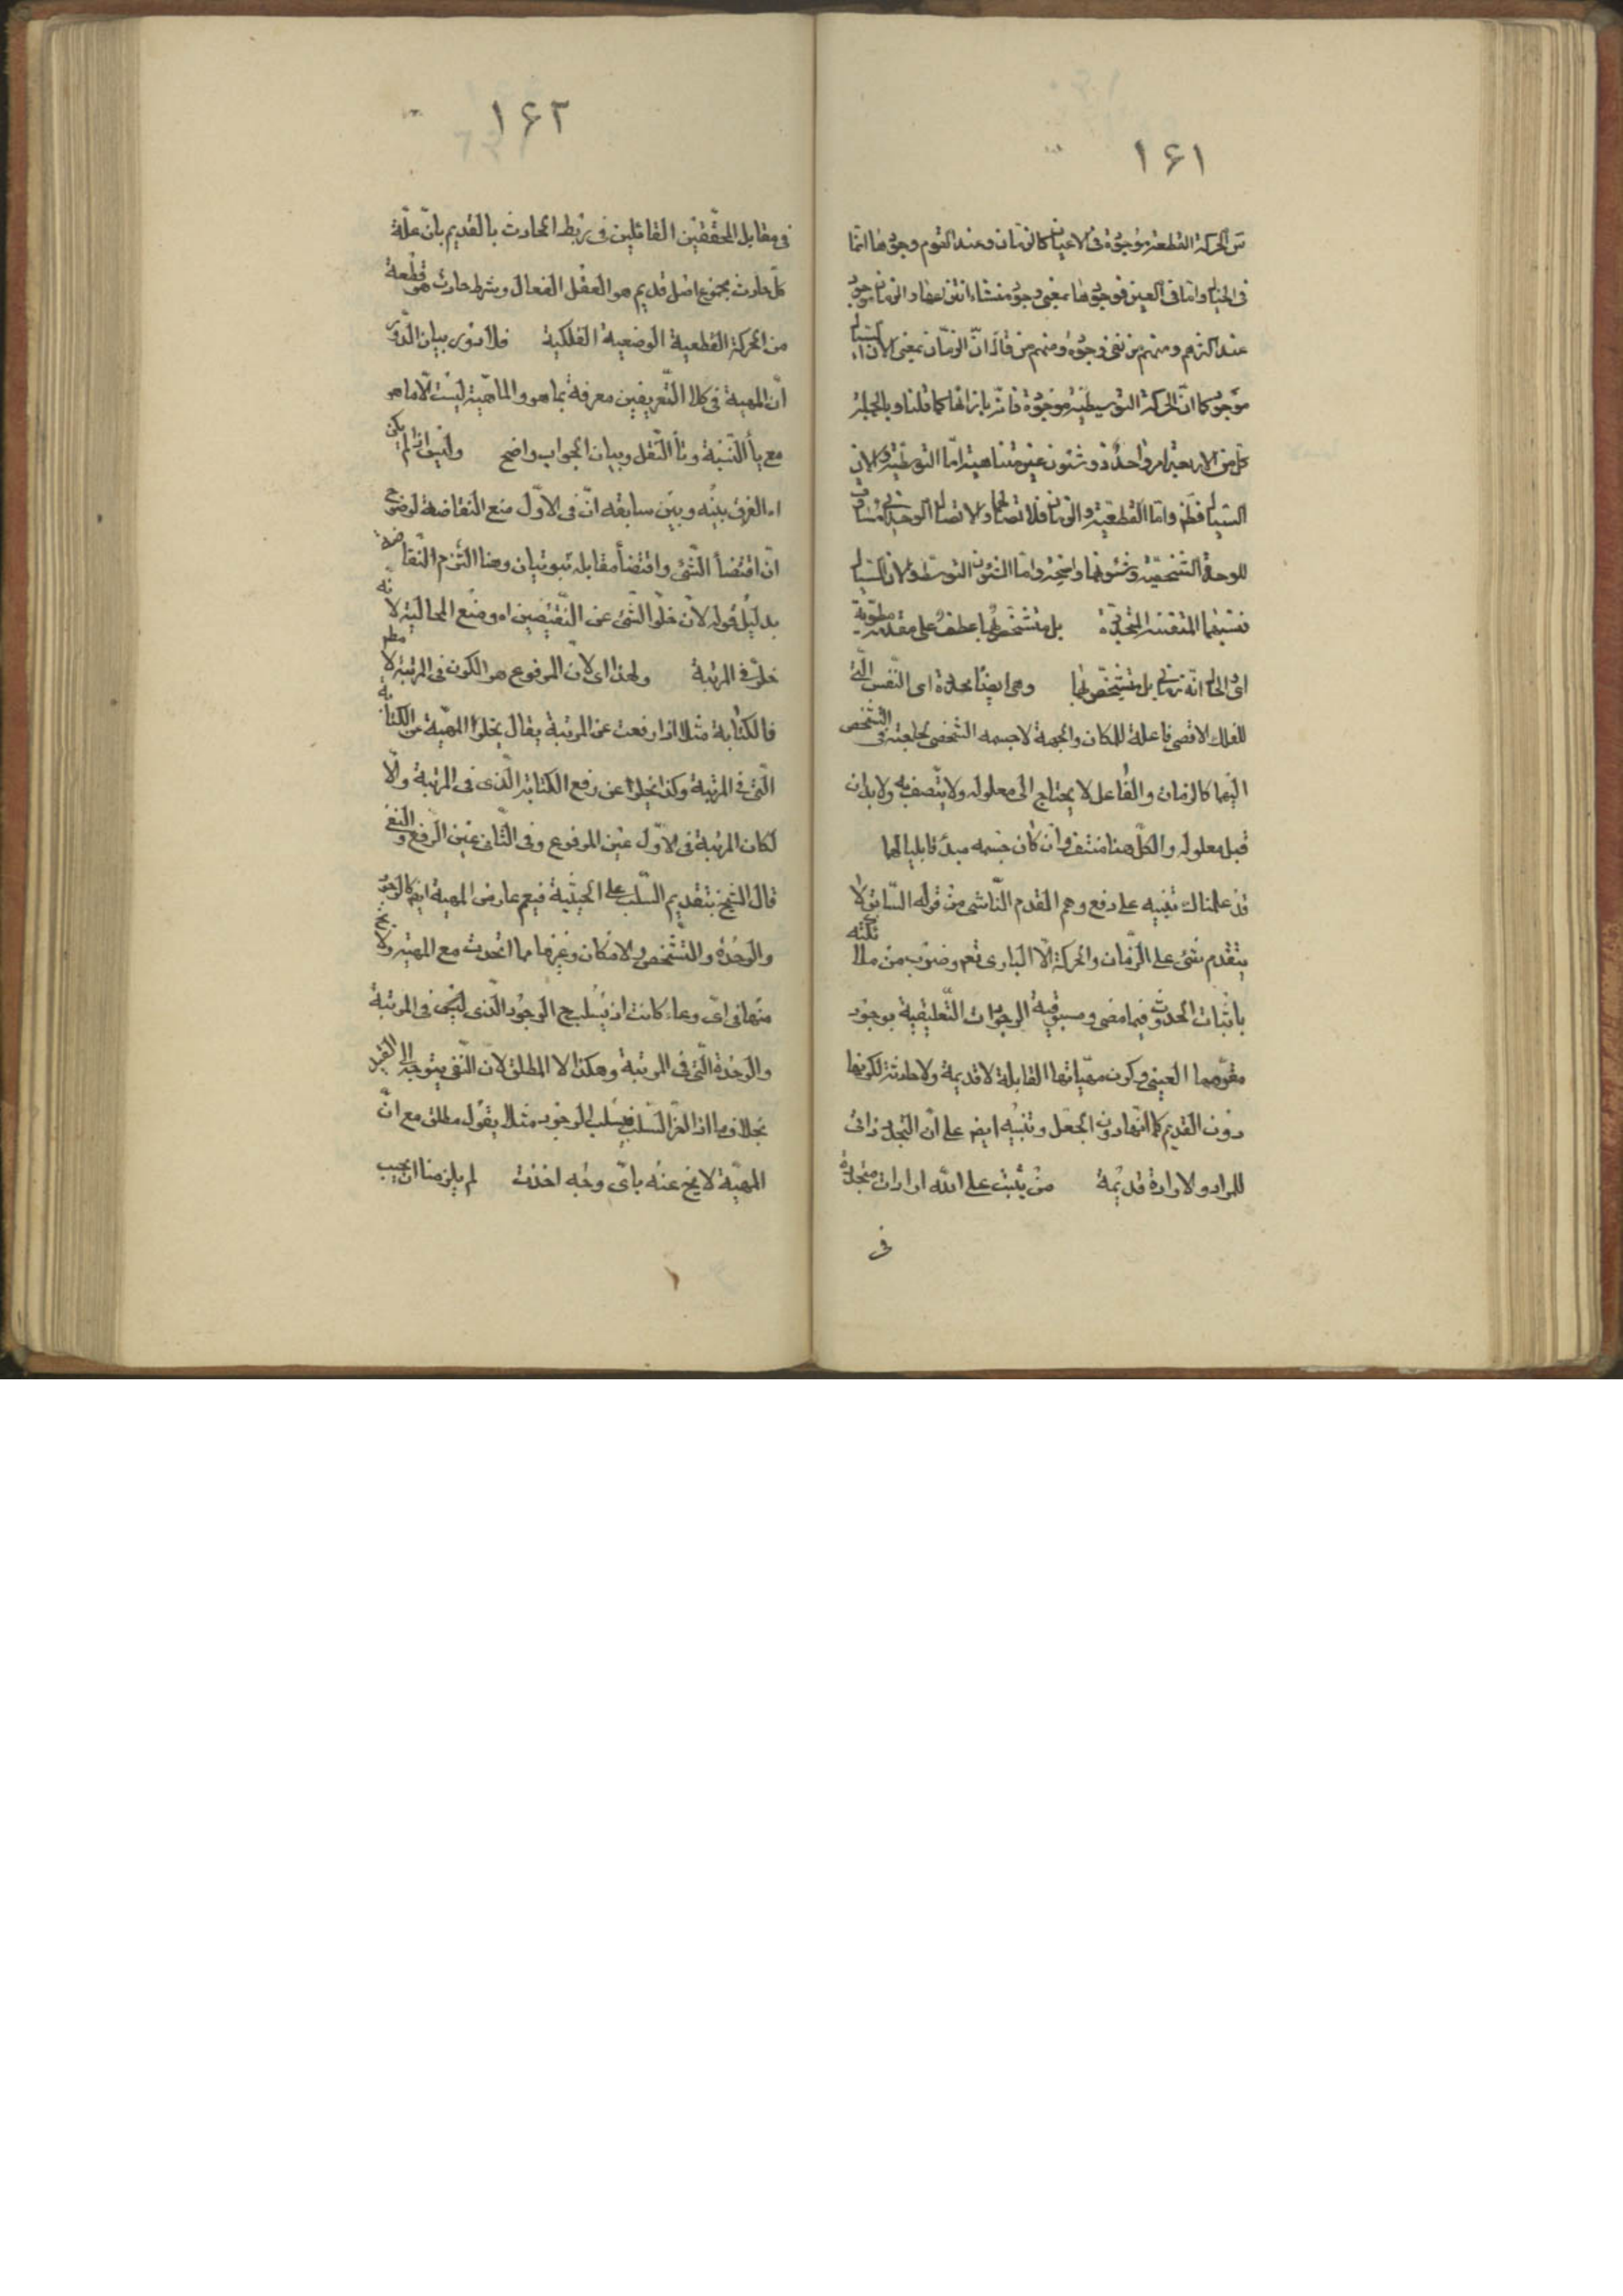 ١٦١
س الحركة القطعية موجودة فى الاعيان كالزمان وعند القوم وجودها انما
فى الخيال واما فى العين فوجودها بمعنى وجود منشاء انتزاعها والزمان موجود
عند اكثرهم ومنهم من نفى وجوده ومنهم من قال ان الزمان بمعنى الآن السيال
موجود كما ان الحركة التوسطية موجودة فانه بازائها كما قلنا وبالجملة
كل من الاربعة امر واحد ذو شئون غير متناهية اما التوسطية والان
السيال فظهر واما القطعية والزمان فلاتصالهما والاتصال الوحدانى مساوق
للوحدة الشخصية وشئونهما واضحة واما الشئون التوسط والان السيال
فنسبهما المتفننة المتجددة بل متشخص لهما عطف على مقدر مطوية
اى والحال انه زمانى بل متشخص لهما وهى ايضا محددة اى النفس التى
للفلك الاقصى فاعلة للمكان والجهة لا جسمه الشخصى لحاجته فى التشخص
اليهما كالزمان والفاعل لا يحتاج الى معلوله ولا يتصف به ولا بد ان
قبل معلوله والكل هنا منتف وان كان جسمه مبدأ قابليا لهما
قد علمناك تنبيه على دفع وهم القدم الناشى من قوله السابق لا
يتقدم شئ على الزمان والحركة الا البارى تعم وضوب من ملا نكته
باثبات الحدوث فيما مضى ومسبوقية الوجودات التعليقية بوجود
مقومهما العينى وكون مهياتها القابلة لا قديمة ولا حادثة لكونها
دون القديم كما انها دون الجعل وتنبيه ايضم على ان التجدد ذاتى
للمراد والارادة قديمة من يثبت على الله ارادات متجددة
فى
١٦٢
فى مقابل المحققين القائلين فى ربط الحادث بالقديم بان علة
كل حادث مجموع اصل قديم هو العقل الفعال وبشرط حادث هو قطعة
من الحركة القطعية الوضعية الفلكية فلا دور بيان الدور
ان المهية فى كلا التعريفين معرفة بما هو والماهية ليست الا ما هو
مع يأ النسبة وتأ النقل وبيان الجواب واضح وليس اذا لم يكن
اه الفرق بينه وبين سابقه ان فى الاول منع التقاضة لوضوح
ان اقتضأ الشئ واقتضأ مقابله ثبوتيان وهنا التزم التقاضة
بدليل قوله لان خلو الشئ عن النقيضين اه ومنع المحالية لانه
خلو فى المرتبة ولهذا اى لان المرفوع هو الكون فى المرتبة لا مطم
فالكتابة مثلا اذا رفعت عن المرتبة يقال يخلو المهية عن الكتابة
التى فى المرتبة وكذا يخلو عن رفع الكتابة الذى فى المرتبة والا
لكان المرتبة فى الاول عين المرفوع وفى الثانى عين الرفع والنفى
قال الشيخ بتقديم السلب على الحيثية فيعم عارض المهية ايضم كالوجود
والوحدة والتشخص والامكان وغيرها مما اتحدت مع المهية ولا يخ
منها فى اى وعاء كانت اذ يسلب ح الوجود الذى ليجئ فى المرتبة
والوحدة التى فى المرتبة وهكذا لا المطلق لان النفى يتوجه الى القيد
بخلاف ما اذا اخر السلب فيسلب الوجود مثلا بقول مطلق مع ان
المهية لا يخ عنه باى وجه اخذت لم يلزمنا ان نجيب